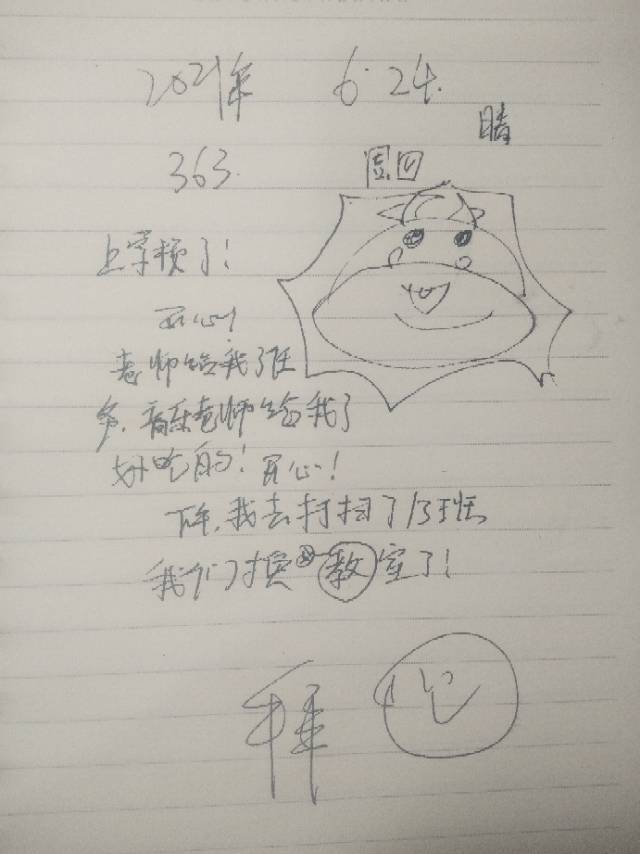 2021年 6.24.
晴
363.
圆回
上学校了!
开心!
老师给我了任
务,音乐老师给我了
好吃的!开心!
下午,我去打扫了
我们换教室了!
拜